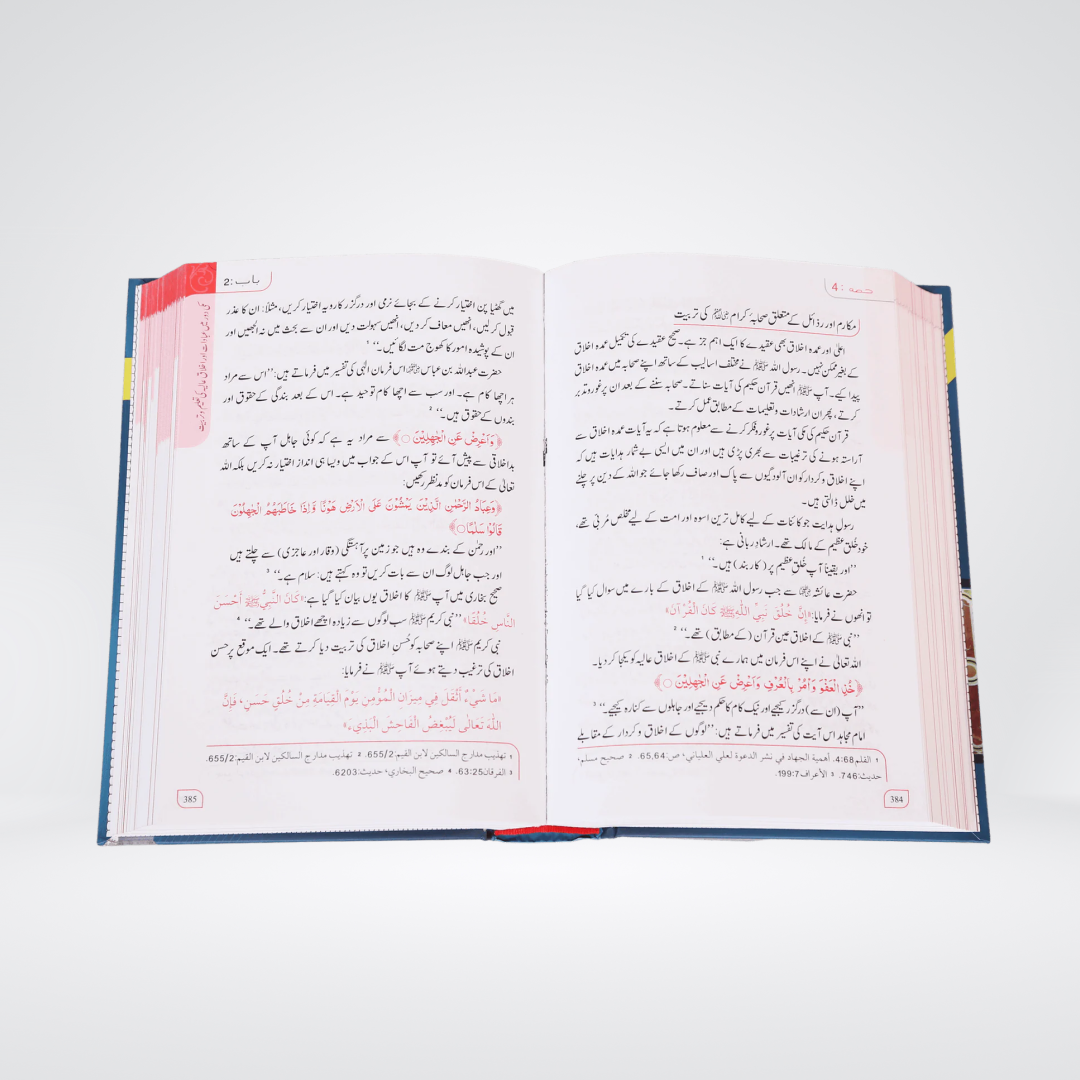 حصہ : 4
مکارم اور رذائل کے متعلق صحابۂ کرام رضی اللہ عنہم کی تربیت
اعلیٰ اور عمدہ اخلاق بھی عقیدے کا ایک اہم جز ہے۔ صحیح عقیدے کی تکمیل عمدہ اخلاق
کے بغیر ممکن نہیں۔ رسول اللہ ﷺ نے مختلف اسالیب کے ساتھ اپنے صحابہ میں عمدہ اخلاق
پیدا کیے۔ آپ ﷺ انھیں قرآن حکیم کی آیات سناتے۔ صحابہ سننے کے بعد ان پر غور و تدبر
کرتے، پھر ان ارشادات و تعلیمات کے مطابق عمل کرتے۔
قرآن حکیم کی مکی آیات پر غور و فکر کرنے سے معلوم ہوتا ہے کہ یہ آیات عمدہ اخلاق سے
آراستہ ہونے کی ترغیبات سے بھری پڑی ہیں اور ان میں ایسی بے شمار ہدایات ہیں کہ
اپنے اخلاق و کردار کو ان آلودگیوں سے پاک اور صاف رکھا جائے جو اللہ کے دین پر چلنے
میں خلل ڈالتی ہیں۔
رسولِ ہدایت جو کائنات کے لیے کامل ترین اسوہ اور امت کے لیے مخلص مُربی تھے،
خود خُلقِ عظیم کے مالک تھے۔ ارشاد ربانی ہے:
’’اور یقیناً آپ خُلقِ عظیم پر (کار بند) ہیں۔‘‘ ¹
حضرت عائشہ رضی اللہ عنہا سے جب رسول اللہ ﷺ کے اخلاق کے بارے میں سوال کیا گیا
تو انھوں نے فرمایا: «إِنَّ خُلُقَ نَبِيِّ اللّٰهِ ﷺ كَانَ الْقُرْآنَ»
’’نبی ﷺ کے اخلاق عین قرآن (کے مطابق) تھے۔‘‘ ²
اللہ تعالیٰ نے اپنے اس فرمان میں ہمارے نبی ﷺ کے اخلاق عالیہ کو یکجا کر دیا۔
﴿خُذِ الْعَفْوَ وَأْمُرْ بِالْعُرْفِ وَأَعْرِضْ عَنِ الْجٰهِلِيْنَ ○﴾
’’آپ (ان سے) درگزر کیجیے اور نیک کام کا حکم دیجیے اور جاہلوں سے کنارہ کیجیے۔‘‘ ³
امام مجاہد اس آیت کی تفسیر میں فرماتے ہیں: ’’لوگوں کے اخلاق و کردار کے مقابلے
1 القلم 4:68. أهمية الجهاد في نشر الدعوة لعلي العلياني، ص: 65,64. 2 صحيح مسلم،
حديث: 746. 3 الأعراف 199:7.
384
باب : 2
مکی دور میں عبادات اور اخلاق عالیہ کی تعلیم و تربیت
میں گھٹیا پن اختیار کرنے کے بجائے نرمی اور درگزر کا رویہ اختیار کریں، مثلاً: ان کا عذر
قبول کر لیں، انھیں معاف کر دیں، انھیں سہولت دیں اور ان سے بحث میں نہ الجھیں اور
ان کے پوشیدہ امور کا کھوج مت لگائیں۔‘‘ ¹
حضرت عبداللہ بن عباس رضی اللہ عنہما اس فرمان الٰہی کی تفسیر میں فرماتے ہیں: ’’اس سے مراد
ہر اچھا کام ہے۔ اور سب سے اچھا کام توحید ہے۔ اس کے بعد بندگی کے حقوق اور
بندوں کے حقوق ہیں۔‘‘ ²
﴿وَأَعْرِضْ عَنِ الْجٰهِلِيْنَ ○﴾ سے مراد یہ ہے کہ کوئی جاہل آپ کے ساتھ
بداخلاقی سے پیش آئے تو آپ اس کے جواب میں ویسا ہی انداز اختیار نہ کریں بلکہ اللہ
تعالیٰ کے اس فرمان کو مدنظر رکھیں:
﴿وَعِبَادُ الرَّحْمٰنِ الَّذِيْنَ يَمْشُوْنَ عَلَى الْاَرْضِ هَوْنًا وَّاِذَا خَاطَبَهُمُ الْجٰهِلُوْنَ
قَالُوْا سَلٰمًا ○﴾
’’اور رحمٰن کے بندے وہ ہیں جو زمین پر آہستگی (وقار اور عاجزی) سے چلتے ہیں
اور جب جاہل لوگ ان سے بات کریں تو وہ کہتے ہیں: سلام ہے۔‘‘ ³
صحیح بخاری میں آپ ﷺ کا اخلاق یوں بیان کیا گیا ہے: «كَانَ النَّبِيُّ ﷺ أَحْسَنَ
النَّاسِ خُلُقًا» ’’نبی کریم ﷺ سب لوگوں سے زیادہ اچھے اخلاق والے تھے۔‘‘ ⁴
نبی کریم ﷺ اپنے صحابہ کو حُسنِ اخلاق کی تربیت دیا کرتے تھے۔ ایک موقع پر حسن
اخلاق کی ترغیب دیتے ہوئے آپ ﷺ نے فرمایا:
«مَا شَيْءٌ أَثْقَلَ فِي مِيزَانِ الْمُؤْمِنِ يَوْمَ الْقِيَامَةِ مِنْ خُلُقٍ حَسَنٍ، فَإِنَّ
اللّٰهَ تَعَالٰى لَيُبْغِضُ الْفَاحِشَ الْبَذِيءَ»
1 تهذيب مدارج السالكين لابن القيم: 655/2. 2 تهذيب مدارج السالكين لابن القيم: 655/2.
3 الفرقان 63:25. 4 صحيح البخاري، حديث: 6203.
385